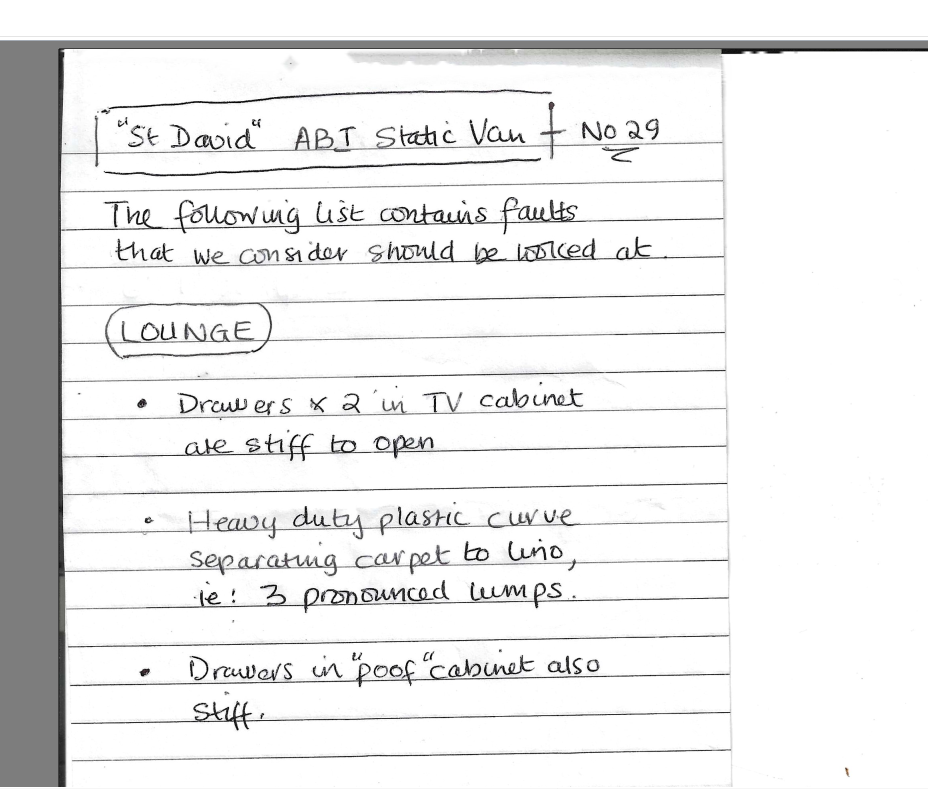 "St David" ABI Static Van - No 29
The following list contains faults
that we consider should be looked at.
LOUNGE
• Drawers x 2 in TV cabinet
are stiff to open
• Heavy duty plastic curve
separating carpet to lino,
ie: 3 pronounced lumps.
• Drawers in "poof" cabinet also
stiff.